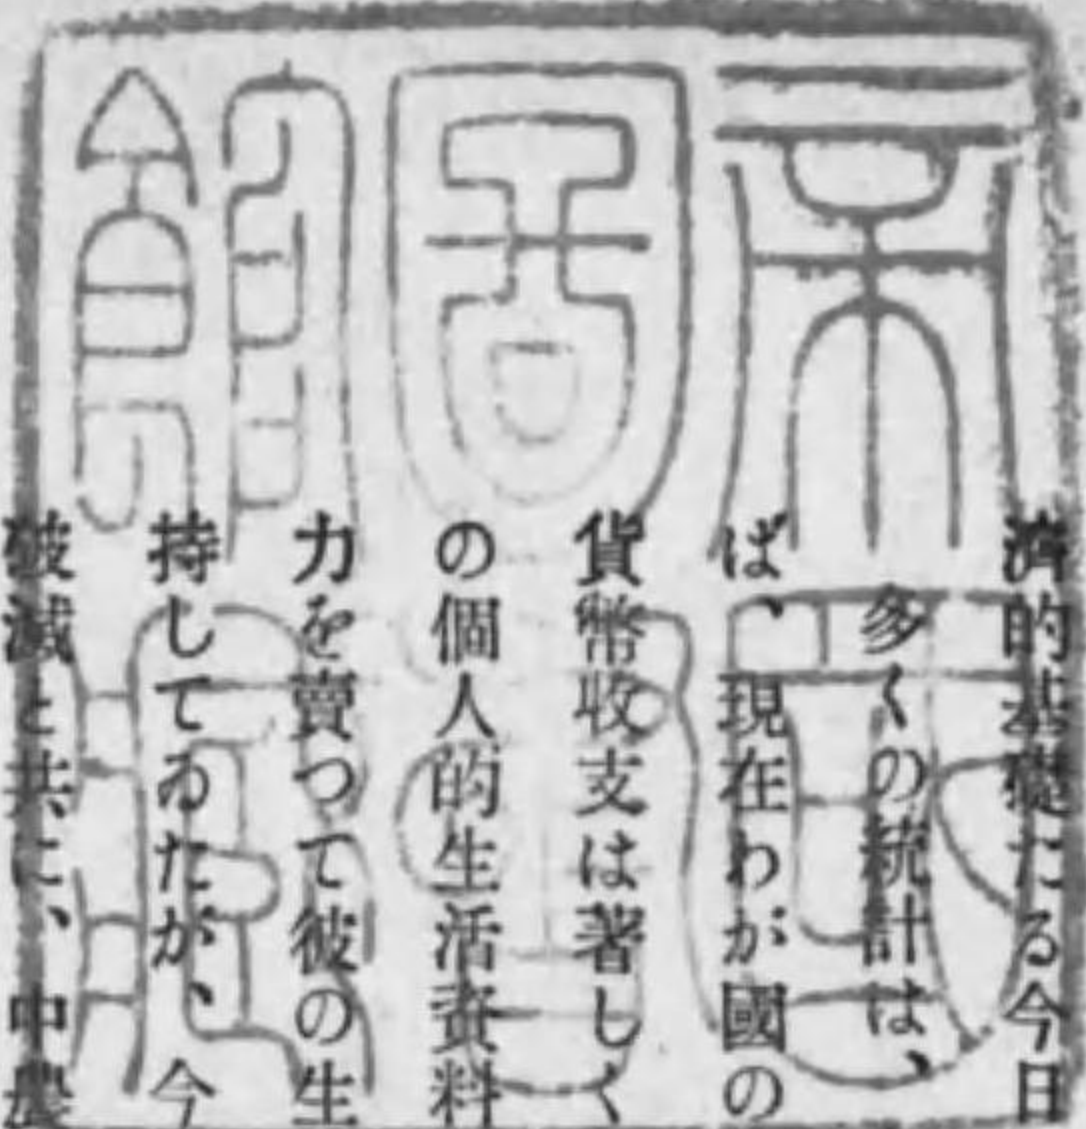 濟的基礎たる今日
多くの統計は、
ば、現在わが國の
貨幣收支は著しく
の個人的生活資料
力を賣つて彼の生
持してゐたが、今
破滅と共に、中農
帝國
圖書
館藏